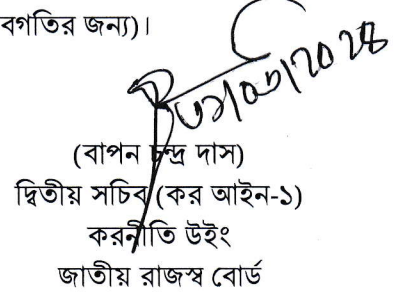 বগতির জন্য)।
(বাপন চন্দ্র দাস)
দ্বিতীয় সচিব (কর আইন-১)
করনীতি উইং
জাতীয় রাজস্ব বোর্ড